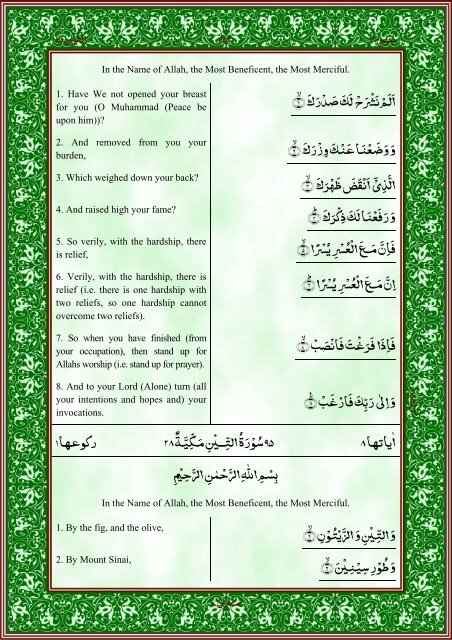 In the Name of Allah, the Most Beneficent, the Most Merciful.
1. Have We not opened your breast
for you (O Muhammad (Peace be
upon him))?
اَلَمْ نَشْرَحْ لَكَ صَدْرَكَ ۙ﴿۱﴾
2. And removed from you your
burden,
وَ وَضَعْنَا عَنْكَ وِزْرَكَ ۙ﴿۲﴾
3. Which weighed down your back?
الَّذِیْۤ اَنْقَضَ ظَهْرَكَ ۙ﴿۳﴾
4. And raised high your fame?
وَ رَفَعْنَا لَكَ ذِكْرَكَ ؕ﴿۴﴾
5. So verily, with the hardship, there
is relief,
فَاِنَّ مَعَ الْعُسْرِ یُسْرًا ۙ﴿۵﴾
6. Verily, with the hardship, there is
relief (i.e. there is one hardship with
two reliefs, so one hardship cannot
overcome two reliefs).
اِنَّ مَعَ الْعُسْرِ یُسْرًا ؕ﴿۶﴾
7. So when you have finished (from
your occupation), then stand up for
Allahs worship (i.e. stand up for prayer).
فَاِذَا فَرَغْتَ فَانْصَبْ ۙ﴿۷﴾
8. And to your Lord (Alone) turn (all
your intentions and hopes and) your
invocations.
وَ اِلٰی رَبِّكَ فَارْغَبْ ﴿۸﴾
اٰیاتها ۸ ۹۵ سُوْرَةُ التِّیْنِ مَكِّیَّةٌ ۲۸ ركوعها ۱
بِسْمِ اللّٰهِ الرَّحْمٰنِ الرَّحِیْمِ
In the Name of Allah, the Most Beneficent, the Most Merciful.
1. By the fig, and the olive,
وَ التِّیْنِ وَ الزَّیْتُوْنِ ۙ﴿۱﴾
2. By Mount Sinai,
وَ طُوْرِ سِیْنِیْنَ ۙ﴿۲﴾